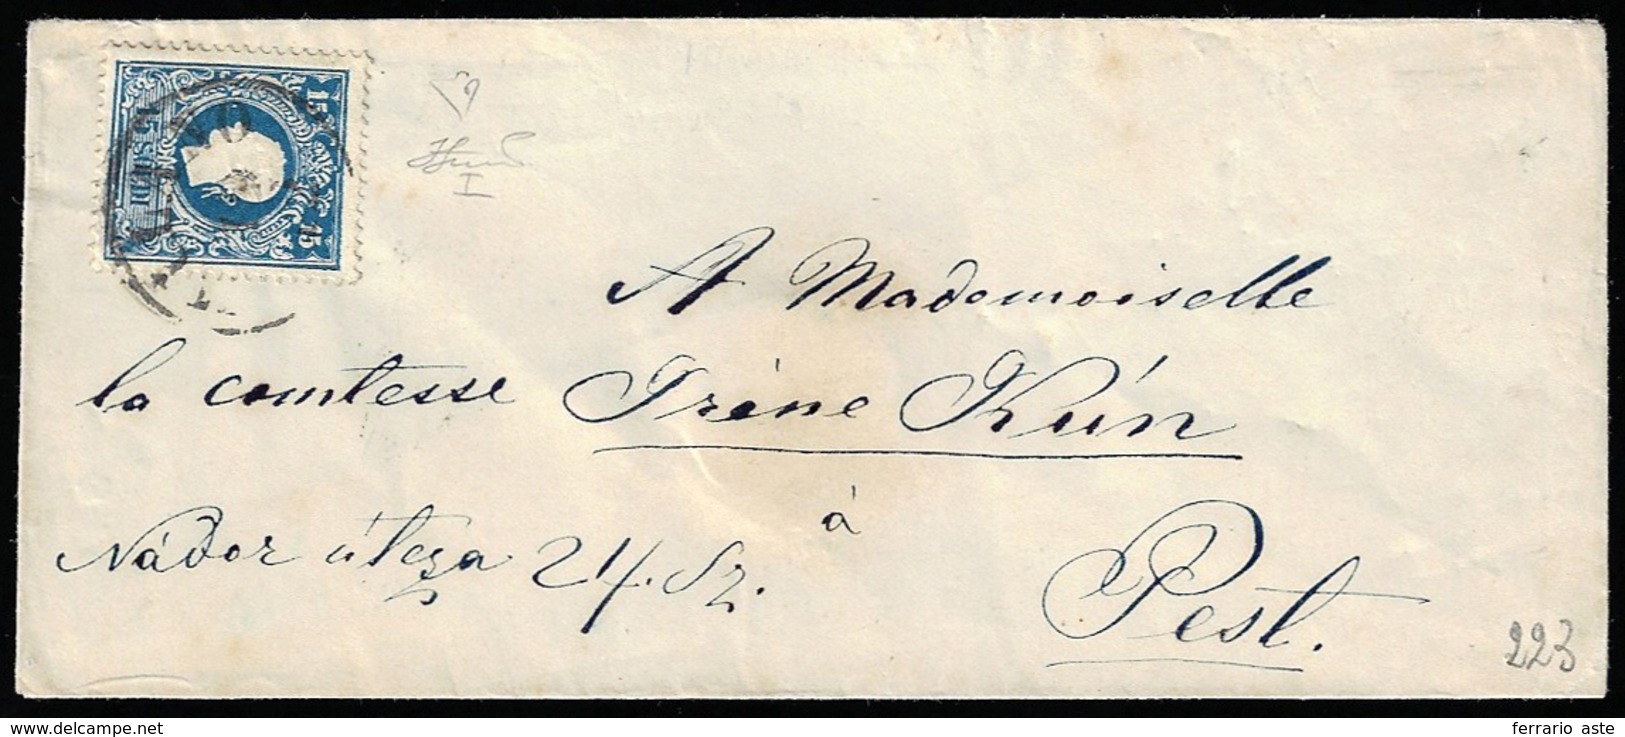 15
15 SOLDI
15
A Mademoiselle
la comtesse Irène Kún
à
Nádor útcza 24. Sz.
Pest.
I
223
www.delcampe.net
ferrario aste